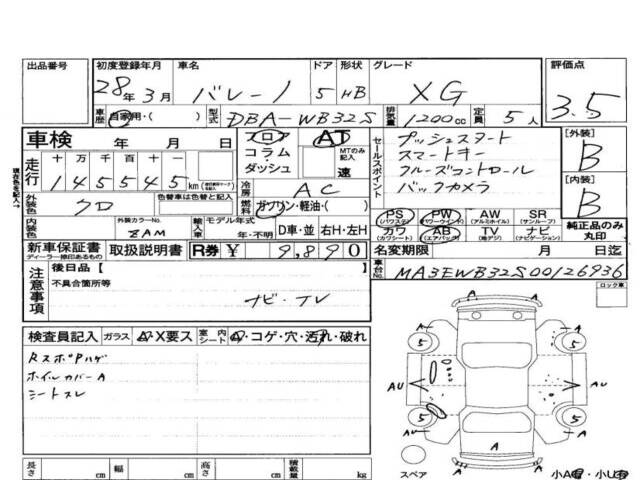 出品番号 初度登録年月 車名 ドア 形状 グレード 評価点
28年3月 バレーノ 5 HB XG 3.5
車歴 自家用・( ) 型式 DBA-WB32S 排気量 1200cc 定員 5人
車検 年 月 日
フロア コラム・ダッシュ AT MTのみ記入 速
セールスポイント
プッシュスタート
スマートキー
クルーズコントロール
バックカメラ
[外装] B
[内装] B
現在色を記入→
走行 十 万 千 百 十 一
145545km
冷房 AC
外装色 クロ 色替車は色替と記入
燃料 ガソリン・軽油・( )
内装色 外装カラーNo. ZAM
輸入車 モデル年式 年・不明 D車・並 右H・左H
PS (パワステ) PW (パワーウインド) AW (アルミホイル) SR (サンルーフ)
カワ (カワシート) AB (エアバッグ) TV (地デジ) ナビ (ナビゲーション)
純正品のみ丸印
新車保証書 ディーラー捺印あるもの 取扱説明書 R券 ¥ 9,890
名変期限 月 日迄
車台No. MA3EWB32S00126936
注意事項 後日品 [ ]
不具合箇所等
ナビ・TV
ロック車
検査員記入 ガラス A・X要ス 室内シート A・コゲ・穴・汚れ・破れ
RスポPハゲ
ホイルカバーA
シートスレ
5 A 5
AU AU
5 A 5
A
A A
スペア 小A・小U
長さ cm 幅 cm 高さ cm 積載量 kg